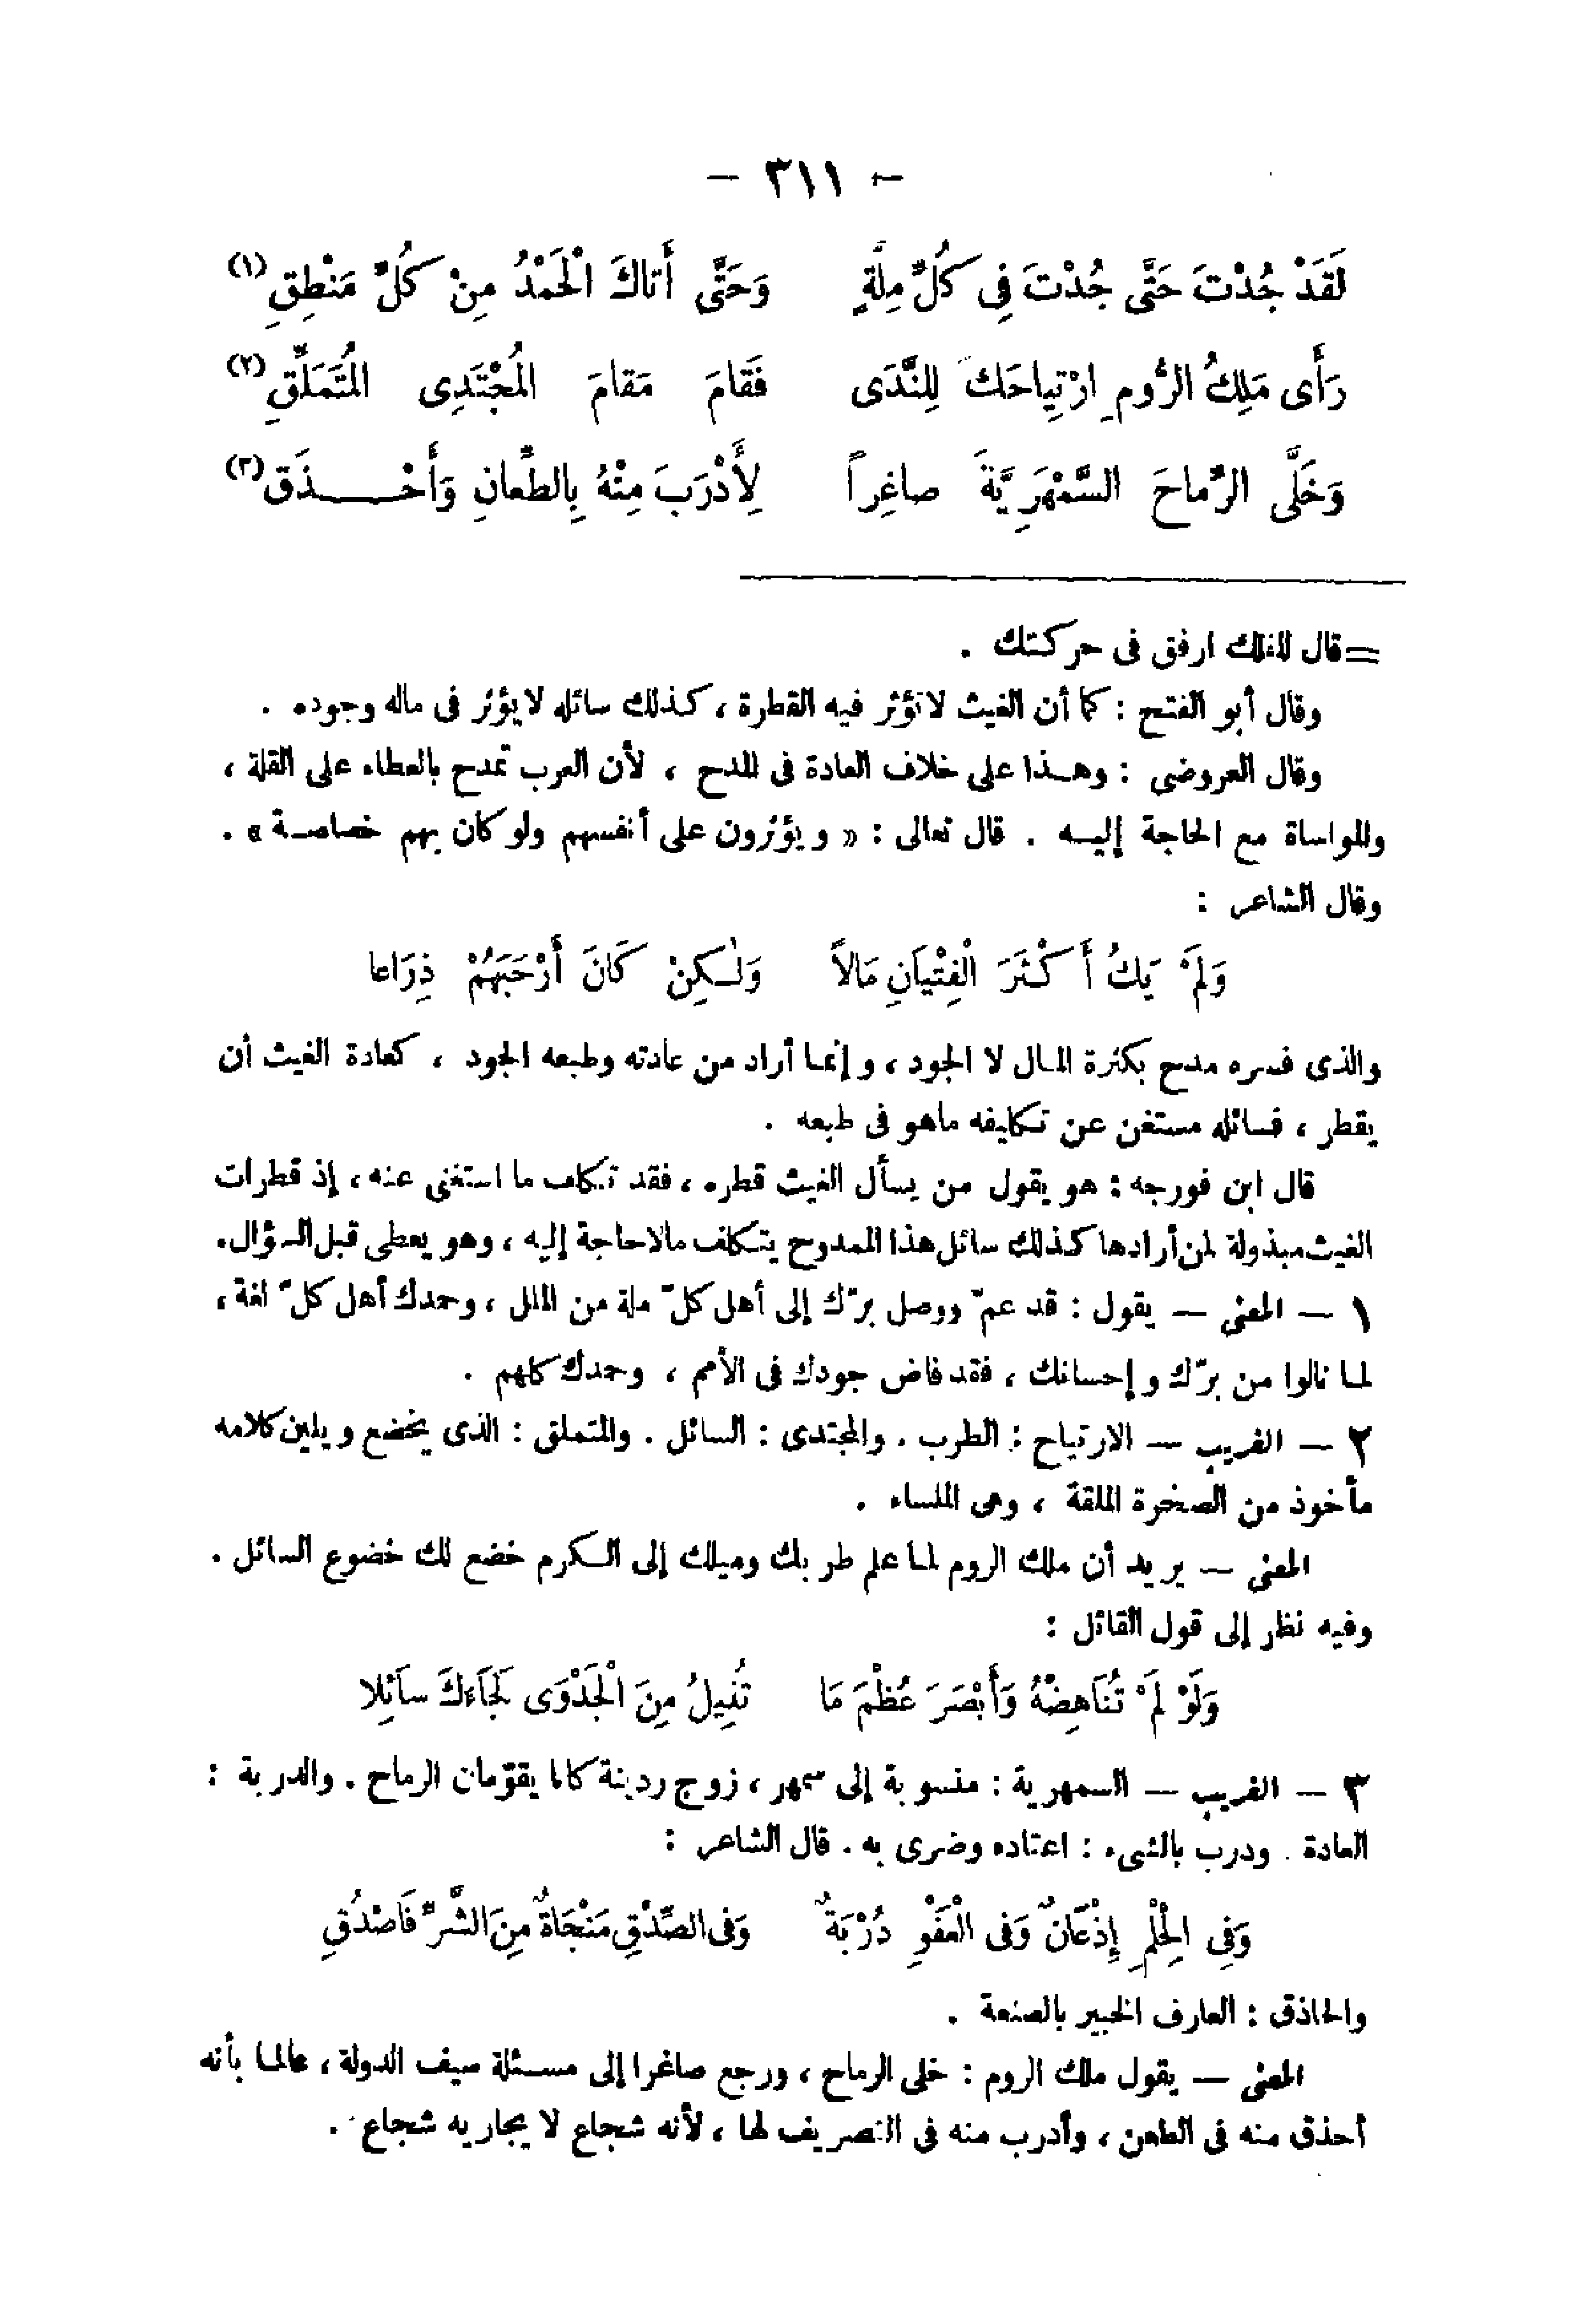 - ٣١١ -
لَقَدْ جُدْتَ حَتَّى جُدْتَ فِى كُلِّ مِلَّةٍ وَحَتَّى أَتاكَ الْحَمْدُ مِنْ كُلِّ مَنْطِقِ (١)
رَأَى مَلِكُ الرُّومِ ارْتِياحَكَ لِلنَّدَى فَقَامَ مَقامَ المُجْتَدِى المُتَمَلِّقِ (٢)
وَخَلَّى الرِّماحَ السَّمْهَرِيَّةَ صاغِراً لِأَدْرَبَ مِنْهُ بِالطِّعانِ وَأَحْـــذَقِ (٣)
= قال للفلك ارفق فى حركتك .
وقال أبو الفتح : كما أن الغيث لا تؤثر فيه القطرة ، كذلك سائله لا يؤثر فى ماله وجوده .
وقال العروضى : وهـذا على خلاف العادة فى المدح ، لأن العرب تمدح بالعطاء على القلة ،
والمواساة مع الحاجة إليـه . قال تعالى : « ويؤثرون على أنفسهم ولو كان بهم خصاصـة » .
وقال الشاعر :
وَلَمْ يَكُ أَكْثَرَ الْفِتْيَانِ مَالاً وَلٰـكِنْ كَانَ أَرْحَبَهُمْ ذِرَاعا
والذى فسره مدح بكثرة المـال لا الجود ، وإنمـا أراد من عادته وطبعه الجود ، كعادة الغيث أن
يقطر ، فسائله مستغن عن تـكليفه ماهو فى طبعه .
قال ابن فورجه : هو يقول من يسأل الغيث قطره ، فقد تـكلف ما استغنى عنه ، إذ قطرات
الغيث مبذولة لمن أرادها كذلك سائل هذا الممدوح يتـكلف مالا حاجة إليه ، وهو يعطى قبل السؤال .
١ — المعنى — يقول : قد عمّ ووصل برّك إلى أهل كلّ ملة من الملل ، وحمدك أهل كلّ لغة ،
لمـا نالوا من برّك وإحسانك ، فقد فاض جودك فى الأمم ، وحمدك كلهم .
٢ — الغريب — الارتياح : الطرب . والمجتدى : السائل . والمتملق : الذى يخضع ويلين كلامه
مأخوذ من الصخرة الملقة ، وهى الملساء .
المعنى — يريد أن ملك الروم لمـا علم طربك وميلك إلى الـكرم خضع لك خضوع السائل .
وفيه نظر إلى قول القائل :
وَلَوْ لَمْ تُنَاهِضْهُ وَأَبْصَرَ عُظْمَ مَا تُنِيلُ مِنَ الْجَدْوَى لَجَاءَكَ سَائِلا
٣ — الغريب — السمهرية : منسوبة إلى سمهر ، زوج ردينة كانا يقوّمان الرماح . والدربة :
العادة . ودرب بالشىء : اعتاده وضرى به . قال الشاعر :
وَفِى الْحِلْمِ إِذْعَانٌ وَفى الْعَفْوِ دُرْبَةٌ وَفى الصِّدْقِ مَنْجَاةٌ مِنَ الشَّرِّ فَاصْدُقِ
والحاذق : العارف الخبير بالصنعة .
المعنى — يقول ملك الروم : خلى الرماح ، ورجع صاغرا إلى مسـئلة سيف الدولة ، عالمـا بأنه
أحذق منه فى الطعن ، وأدرب منه فى التصريف لها ، لأنه شجاع لا يجاريه شجاع .